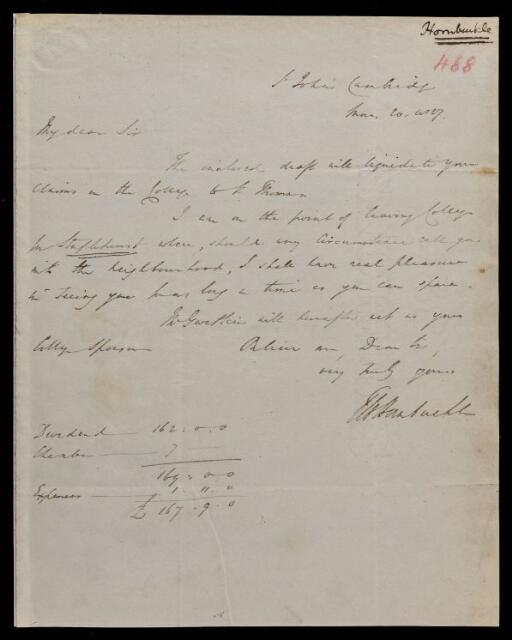 Hornbuckle
488
St John's Cambridge
20
My dear Sir
The enclosed draft will liquidate your
claims on the College to St Thomas
I am on the point of leaving College
for Staplehurst where, should any circumstance call you
into the neighbourhood, I shall have real pleasure
in seeing you for as long a time as you can spare.
Mr Gwatkin will hereafter act as your
College Sponsor Believe me, Dear Sir,
very truly yours
Hornbuckle
Dividend 162.0.0
Chamber 7
169.0.0
Expenses 1.11.0
£ 167.9.0